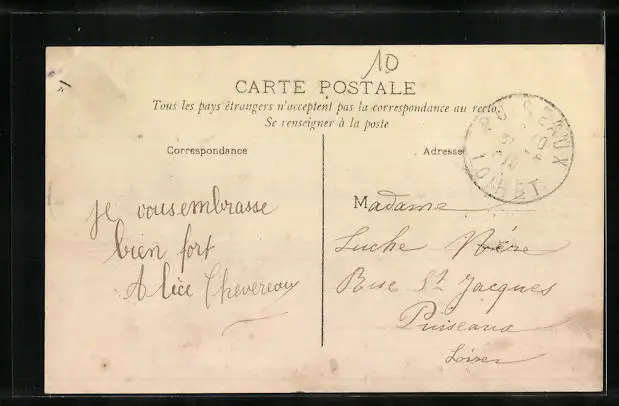 10
CARTE POSTALE
Tous les pays étrangers n'acceptent pas la correspondance au recto.
Se renseigner à la poste
Correspondance
Adresse
PUISEAUX
LOIRET
je vous embrasse
bien fort
Alice Chevereau
Madame
Luche Mère
Rue St Jacques
Puiseaux